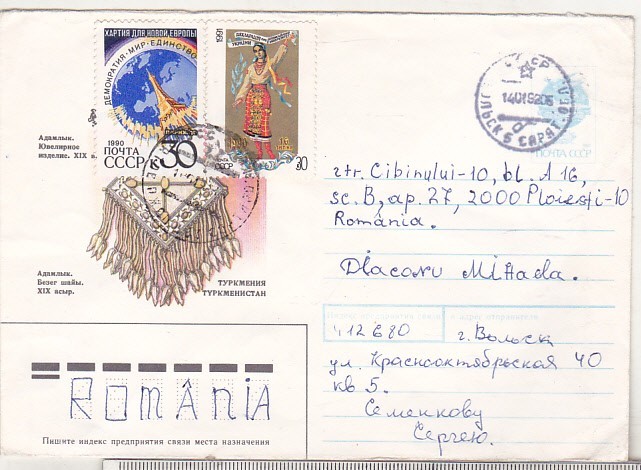 ХАРТИЯ ДЛЯ НОВОЙ ЕВРОПЫ
ДЕМОКРАТИЯ·МИР·ЕДИНСТВО
1990
ПОЧТА
СССР
К
30
1991
ДЕКЛАРАЦИЯ
УКРАИНЫ
ПОЧТА
СССР
30
СССР
ВОЛЬСК 5 САРАТ. ОБЛ.
ПОЧТА СССР
Адамлык.
Ювелирное
изделие. XIX в.
Адамлык.
Безег шайы.
XIX асыр.
ТУРКМЕНИЯ
ТҮРКМЕНИСТАН
str. Cibinului-10, bl. A 16,
sc. B, ap. 27, 2000 Ploiești-10
România.
Diaconu Mihaela.
412680 г. Вольск
ул. Краснооктябрьская 40
кв 5.
Семенкову
Сергею.
ROMÂNIA
Пишите индекс предприятия связи места назначения